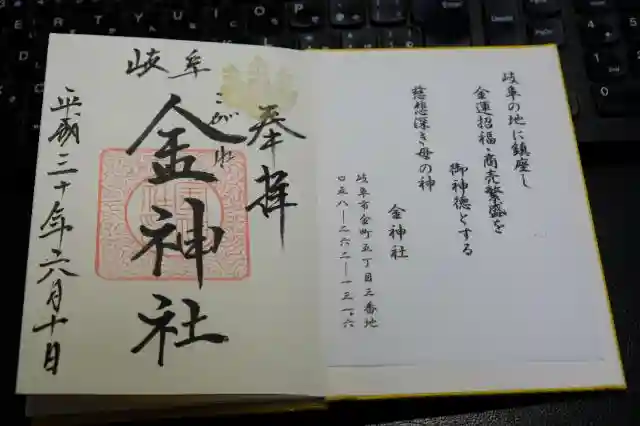 岐阜の地に鎮座し
金運招福・商売繁盛を
御神徳とする
慈悲深き母の神
金神社
岐阜市金町五丁目三番地
〇五八ー二六二ー一三一六
奉拝
岐阜
こがね
金神社
平成三十年六月十日